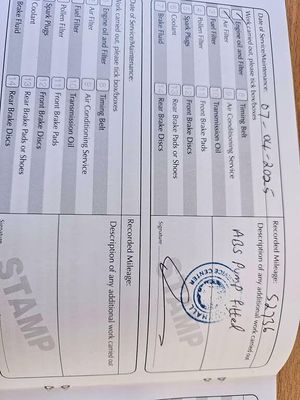 Date of Service/Maintenance: 07-04-2025
Recorded Mileage: 52736
Work carried out, please tick box/boxes
Description of any additional work carried out
Engine oil and Filter
Timing Belt
ABS Pump fitted
Air Filter
Air Conditioning Service
Fuel Filter
Transmission Oil
Pollen Filter
Front Brake Pads
Spark Plugs
Front Brake Discs
Coolant
Rear Brake Pads or Shoes
Brake Fluid
Rear Brake Discs
HALL
SERVICE CENTER
STAMP
Signature
Date of Service/Maintenance:
Recorded Mileage:
Work carried out, please tick box/boxes
Description of any additional work carried out
Engine oil and Filter
Timing Belt
Air Filter
Air Conditioning Service
Fuel Filter
Transmission Oil
Pollen Filter
Front Brake Pads
Spark Plugs
Front Brake Discs
Coolant
Rear Brake Pads or Shoes
Brake Fluid
Rear Brake Discs
STAMP
Signature